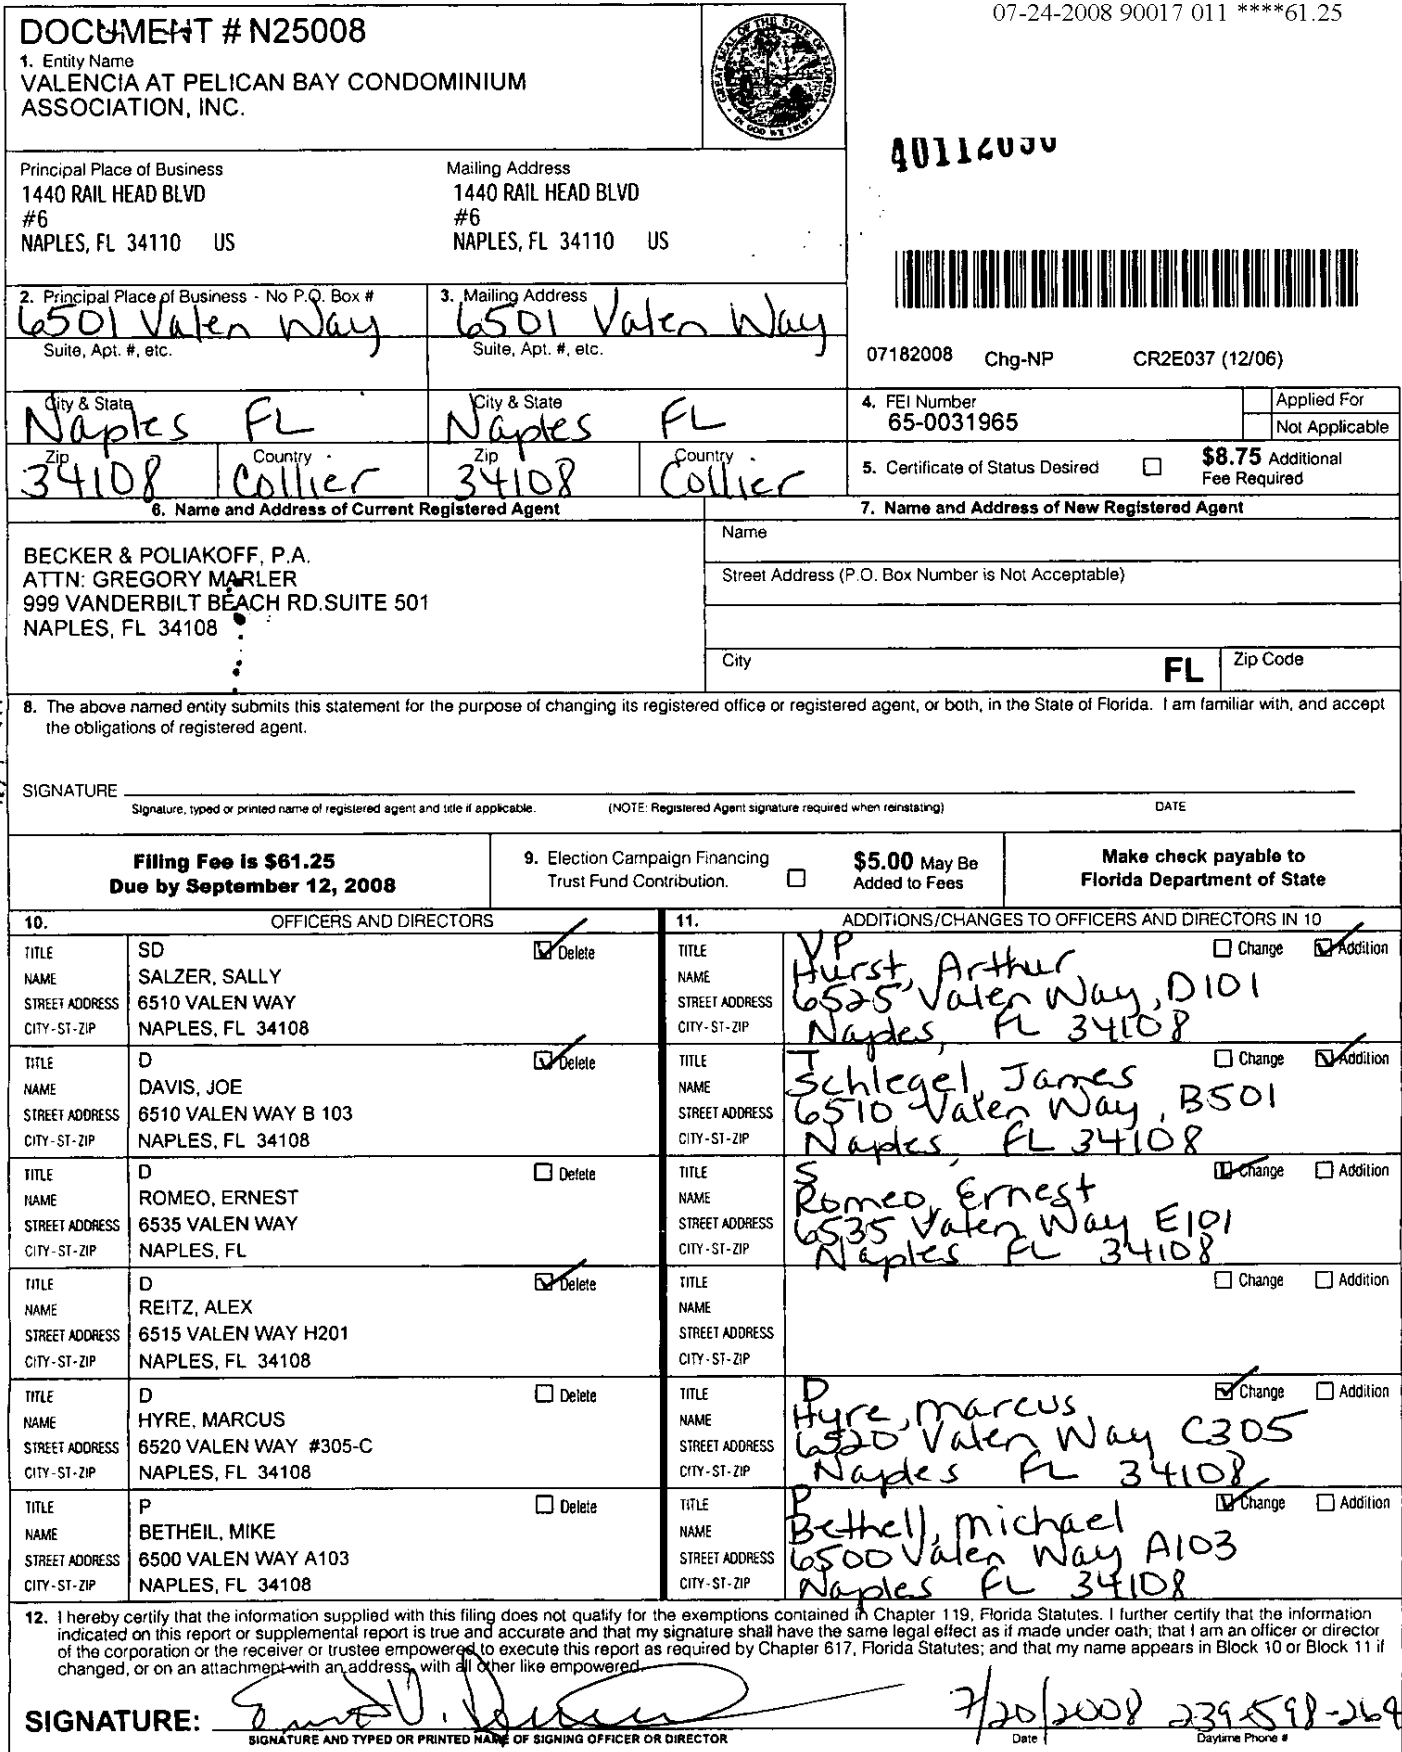 07-24-2008 90017 011 ****61.25
DOCUMENT # N25008
1. Entity Name
VALENCIA AT PELICAN BAY CONDOMINIUM
ASSOCIATION, INC.
GREAT SEAL OF THE STATE OF FLORIDA
IN GOD WE TRUST
Principal Place of Business
1440 RAIL HEAD BLVD
#6
NAPLES, FL 34110 US
Mailing Address
1440 RAIL HEAD BLVD
#6
NAPLES, FL 34110 US
2. Principal Place of Business - No P.O. Box #
6501 Valen Way
Suite, Apt. #, etc.
3. Mailing Address
6501 Valen Way
Suite, Apt. #, etc.
07182008 Chg-NP CR2E037 (12/06)
City & State
Naples FL
City & State
Naples FL
Zip
34108
Country
Collier
Zip
34108
Country
Collier
4. FEI Number
65-0031965
Applied For
Not Applicable
5. Certificate of Status Desired
$8.75 Additional
Fee Required
6. Name and Address of Current Registered Agent
BECKER & POLIAKOFF, P.A.
ATTN: GREGORY MARLER
999 VANDERBILT BEACH RD.SUITE 501
NAPLES, FL 34108
7. Name and Address of New Registered Agent
Name
Street Address (P.O. Box Number is Not Acceptable)
City
FL
Zip Code
8. The above named entity submits this statement for the purpose of changing its registered office or registered agent, or both, in the State of Florida. I am familiar with, and accept
the obligations of registered agent.
SIGNATURE
Signature, typed or printed name of registered agent and title if applicable. (NOTE: Registered Agent signature required when reinstating) DATE
Filing Fee is $61.25
Due by September 12, 2008
9. Election Campaign Financing
Trust Fund Contribution.
$5.00 May Be
Added to Fees
Make check payable to
Florida Department of State
10. OFFICERS AND DIRECTORS
11. ADDITIONS/CHANGES TO OFFICERS AND DIRECTORS IN 10
TITLE SD Delete
NAME SALZER, SALLY
STREET ADDRESS 6510 VALEN WAY
CITY-ST-ZIP NAPLES, FL 34108
TITLE VP Change Addition
NAME Hurst, Arthur
STREET ADDRESS 6525 Valen Way, D101
CITY-ST-ZIP Naples, FL 34108
TITLE D Delete
NAME DAVIS, JOE
STREET ADDRESS 6510 VALEN WAY B 103
CITY-ST-ZIP NAPLES, FL 34108
TITLE T Change Addition
NAME Schlegel, James
STREET ADDRESS 6510 Valen Way, B501
CITY-ST-ZIP Naples, FL 34108
TITLE D Delete
NAME ROMEO, ERNEST
STREET ADDRESS 6535 VALEN WAY
CITY-ST-ZIP NAPLES, FL
TITLE S Change Addition
NAME Romeo, Ernest
STREET ADDRESS 6535 Valen Way E101
CITY-ST-ZIP Naples FL 34108
TITLE D Delete
NAME REITZ, ALEX
STREET ADDRESS 6515 VALEN WAY H201
CITY-ST-ZIP NAPLES, FL 34108
TITLE Change Addition
NAME
STREET ADDRESS
CITY-ST-ZIP
TITLE D Delete
NAME HYRE, MARCUS
STREET ADDRESS 6520 VALEN WAY #305-C
CITY-ST-ZIP NAPLES, FL 34108
TITLE D Change Addition
NAME Hyre, Marcus
STREET ADDRESS 6520 Valen Way C305
CITY-ST-ZIP Naples FL 34108
TITLE P Delete
NAME BETHEIL, MIKE
STREET ADDRESS 6500 VALEN WAY A103
CITY-ST-ZIP NAPLES, FL 34108
TITLE P Change Addition
NAME Bethell, Michael
STREET ADDRESS 6500 Valen Way A103
CITY-ST-ZIP Naples FL 34108
12. I hereby certify that the information supplied with this filing does not qualify for the exemptions contained in Chapter 119, Florida Statutes. I further certify that the information
indicated on this report or supplemental report is true and accurate and that my signature shall have the same legal effect as if made under oath; that I am an officer or director
of the corporation or the receiver or trustee empowered to execute this report as required by Chapter 617, Florida Statutes; and that my name appears in Block 10 or Block 11 if
changed, or on an attachment with an address, with all other like empowered.
SIGNATURE: 7/20/2008 239-598-264
SIGNATURE AND TYPED OR PRINTED NAME OF SIGNING OFFICER OR DIRECTOR Date Daytime Phone #